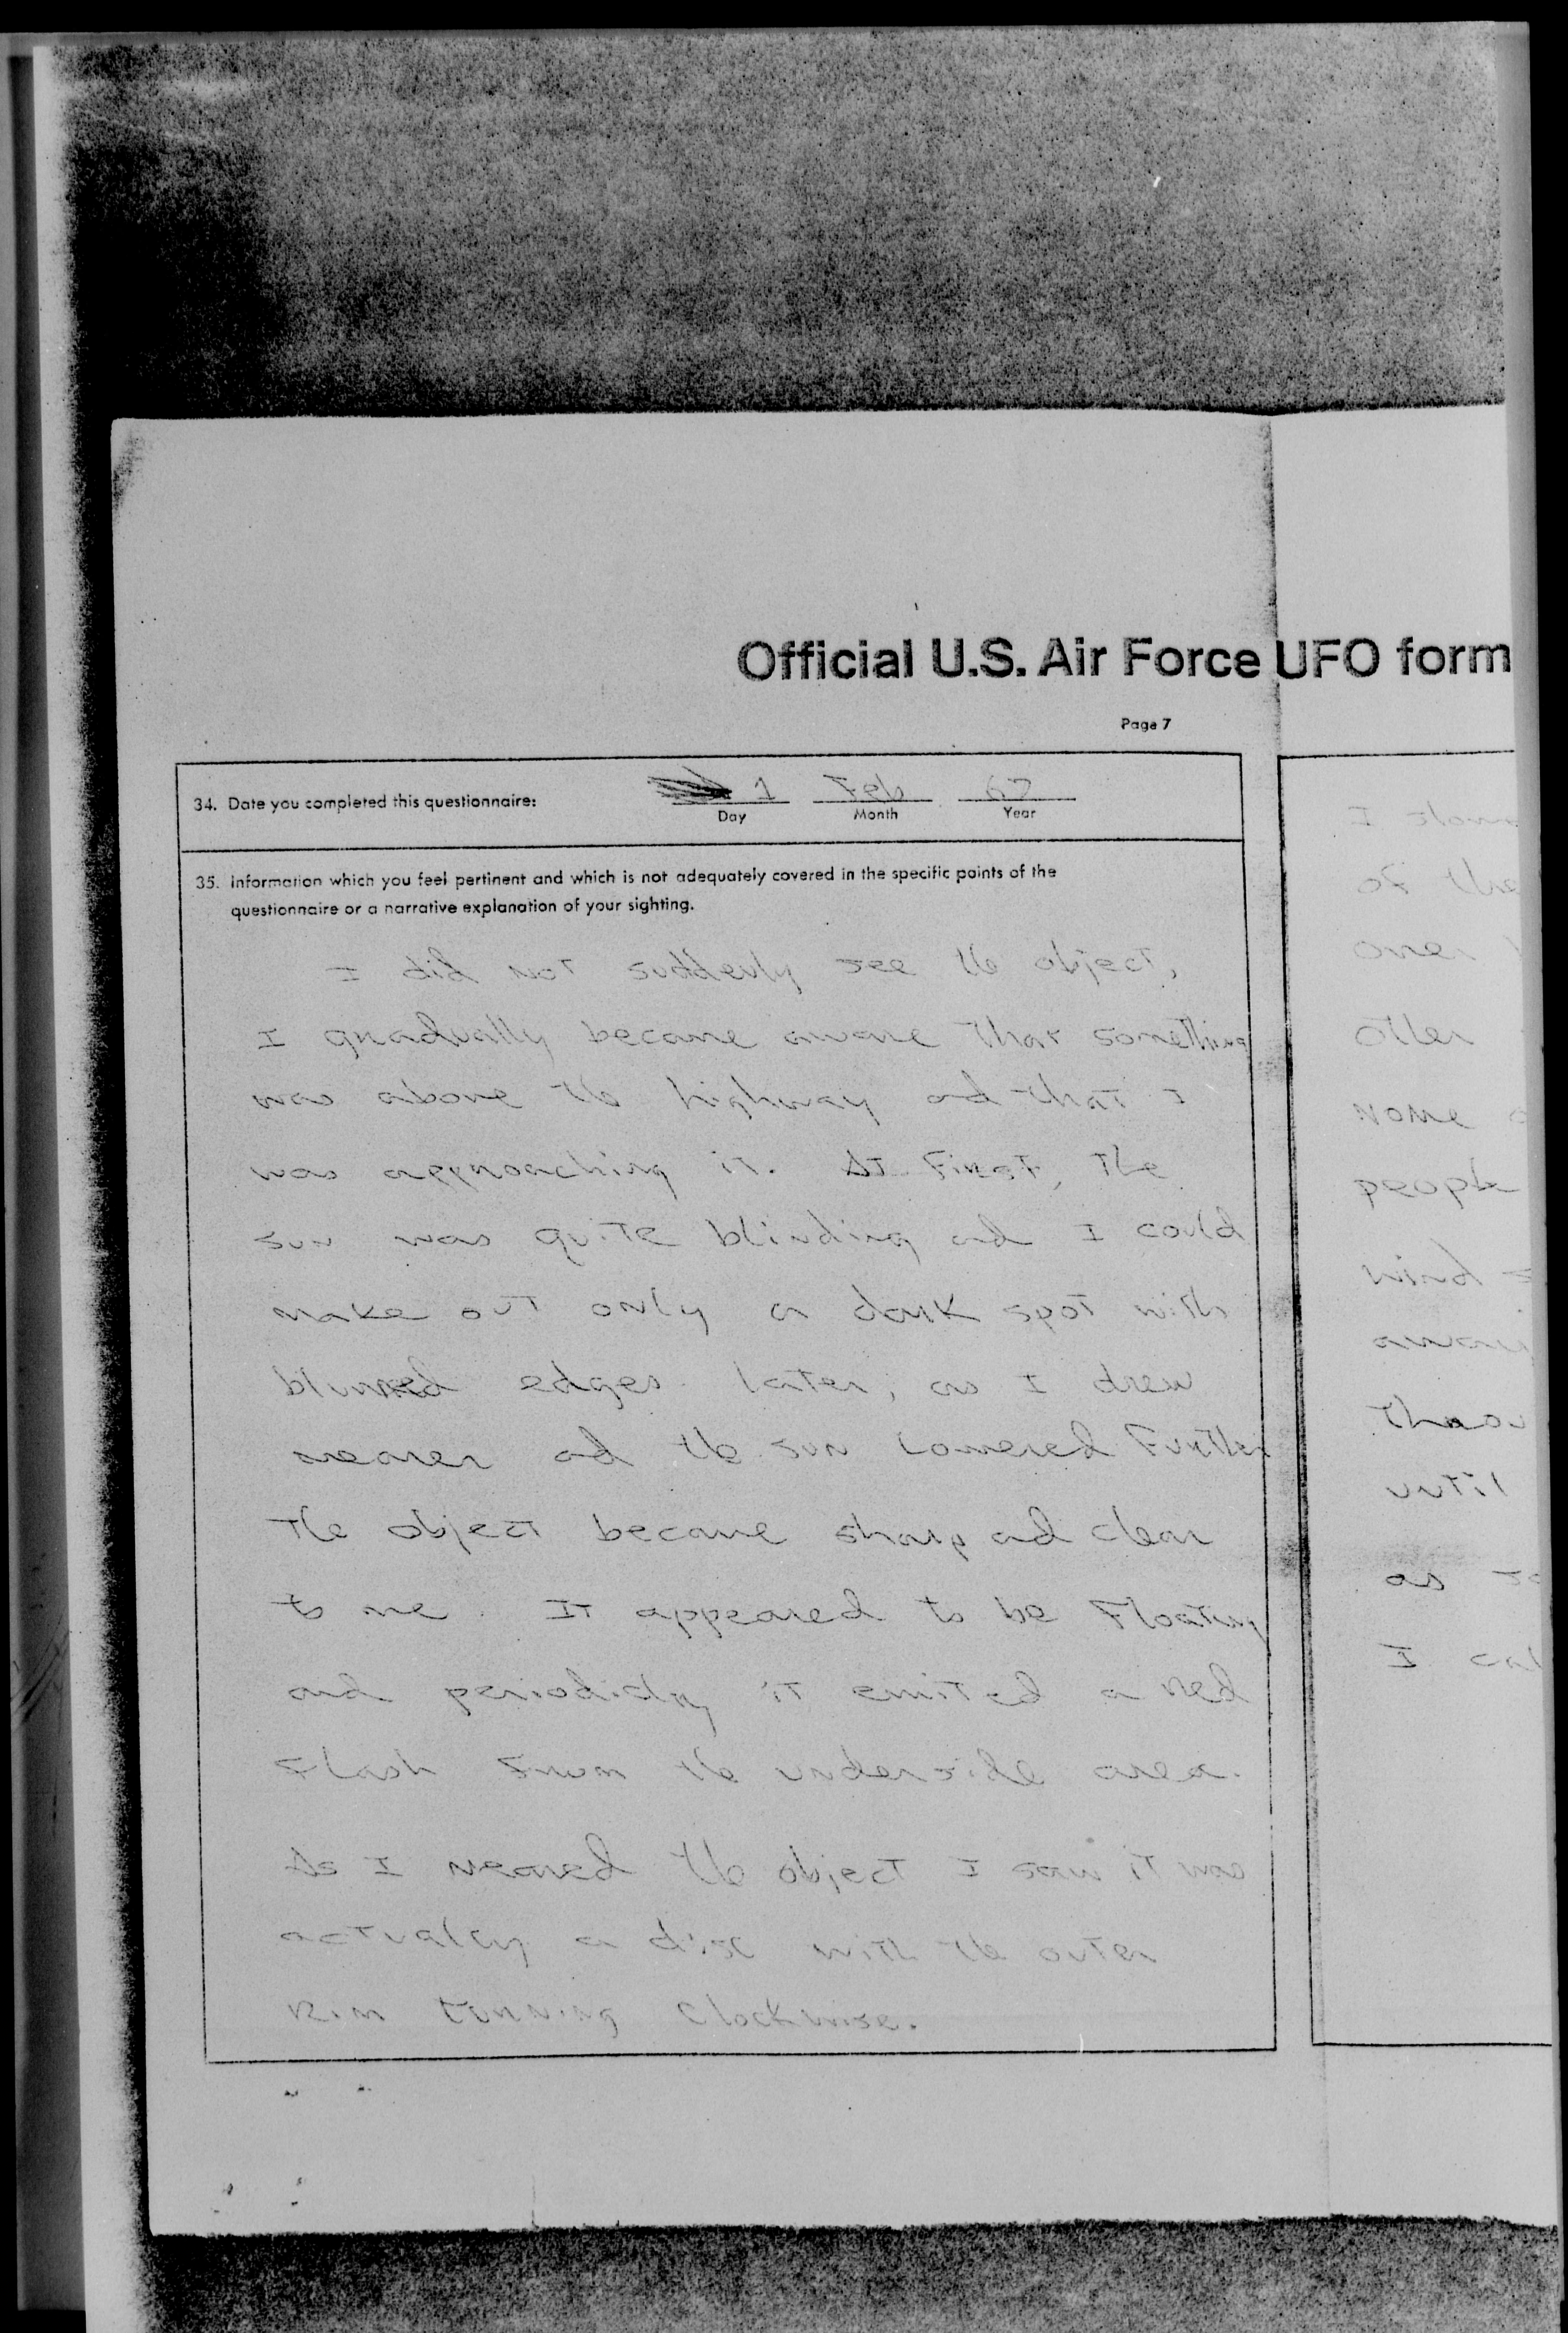 Official U.S. Air Force UFO form
Page 7
34. Date you completed this questionnaire:
1 Feb 67
Day Month Year
35. Information which you feel pertinent and which is not adequately covered in the specific points of the
questionnaire or a narrative explanation of your sighting.
I did not suddenly see the object,
I gradually became aware that something
was above the highway and that I
was approaching it. At First, the
sun was quite blinding and I could
make out only a dark spot with
blurred edges. later, as I drew
nearer ad the sun lowered Further
The object became sharp and clear
to me. It appeared to be Floating
and periodicly it emited a red
Flash From the underside area.
As I neared the object I saw it was
actualy a disc with the outer
rim turning clockwise.
I
of the
over
other
none
people
wind
away
until
as
I